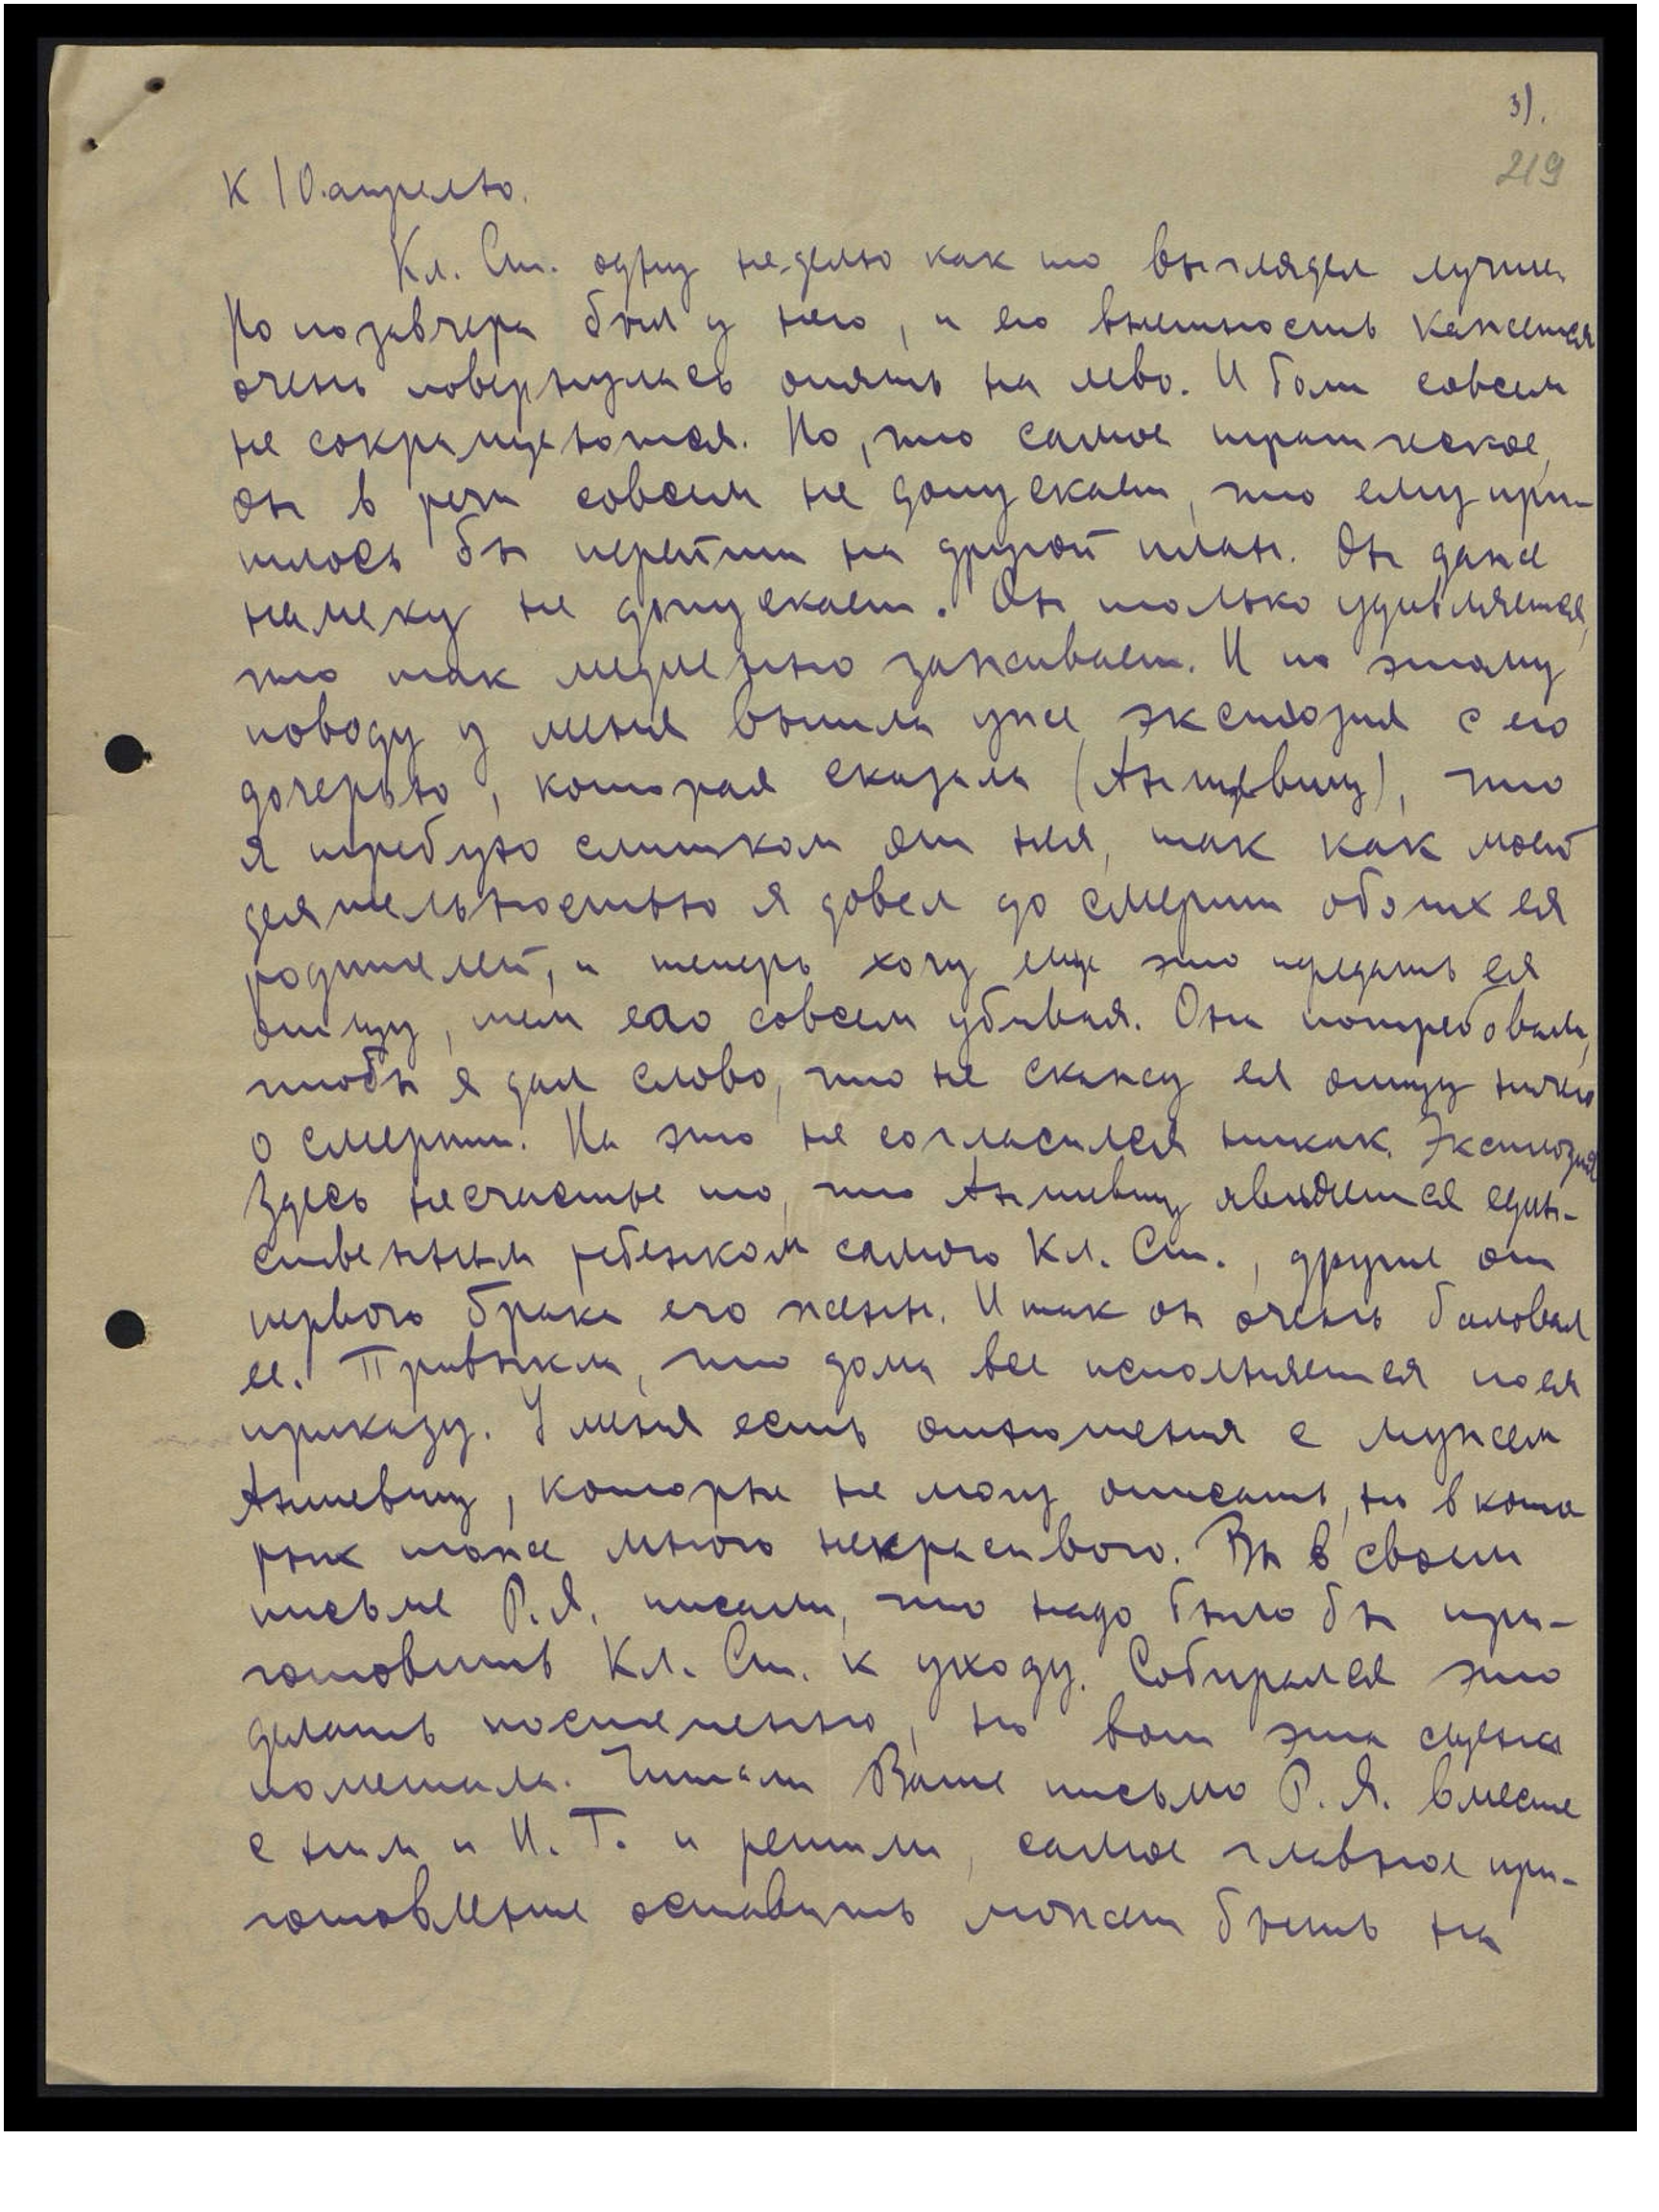 3).
219
К 10.апрелю.
Кл. Ст. одну неделю как то выглядел лучше
Но позавчера был у него, и его внешность кажется
очень повернулась опять на лево. И боли совсем
не сокращаются. Но, что самое трагическое,
он в речи совсем не допускает, что ему при-
шлось бы перейти на другой план. Он даже
намеку не допускает. Он только удивляется,
что так медленно заживает. И по этому
поводу у меня вышла уже эксплозия с его
дочерью, которая сказала (Антевиц), что
я требую слишком от нея, так как моей
деятельностью я довел до смерти обоих ея
родителей, и теперь хочу еще это передать ея
отцу, тем его совсем убивая. Она потребовала,
чтобы я дал слово, что не скажу ея отцу ничего
о смерти. На это не согласился никак. Эксплозия
Здесь несчастье то, что Антевиц является един-
ственным ребенком самого Кл. Ст., другие от
первого брака его жены. И так он очень баловал
ее. Привыкла, что дома все исполняется по ея
приказу. У меня есть отношения с мужем
Антевиц, которые не могу описать, но в кото
рых тоже много некрасивого. Вы в своем
письме Р.Я. писали, что надо было бы при-
готовить Кл. Ст. к уходу. Собирался это
делать постепенно, но вот эта сцена
помешала. Читали Ваше письмо Р.Я. вместе
с ним и И.Т. и решили, самое главное при-
готовление оставить может быть на